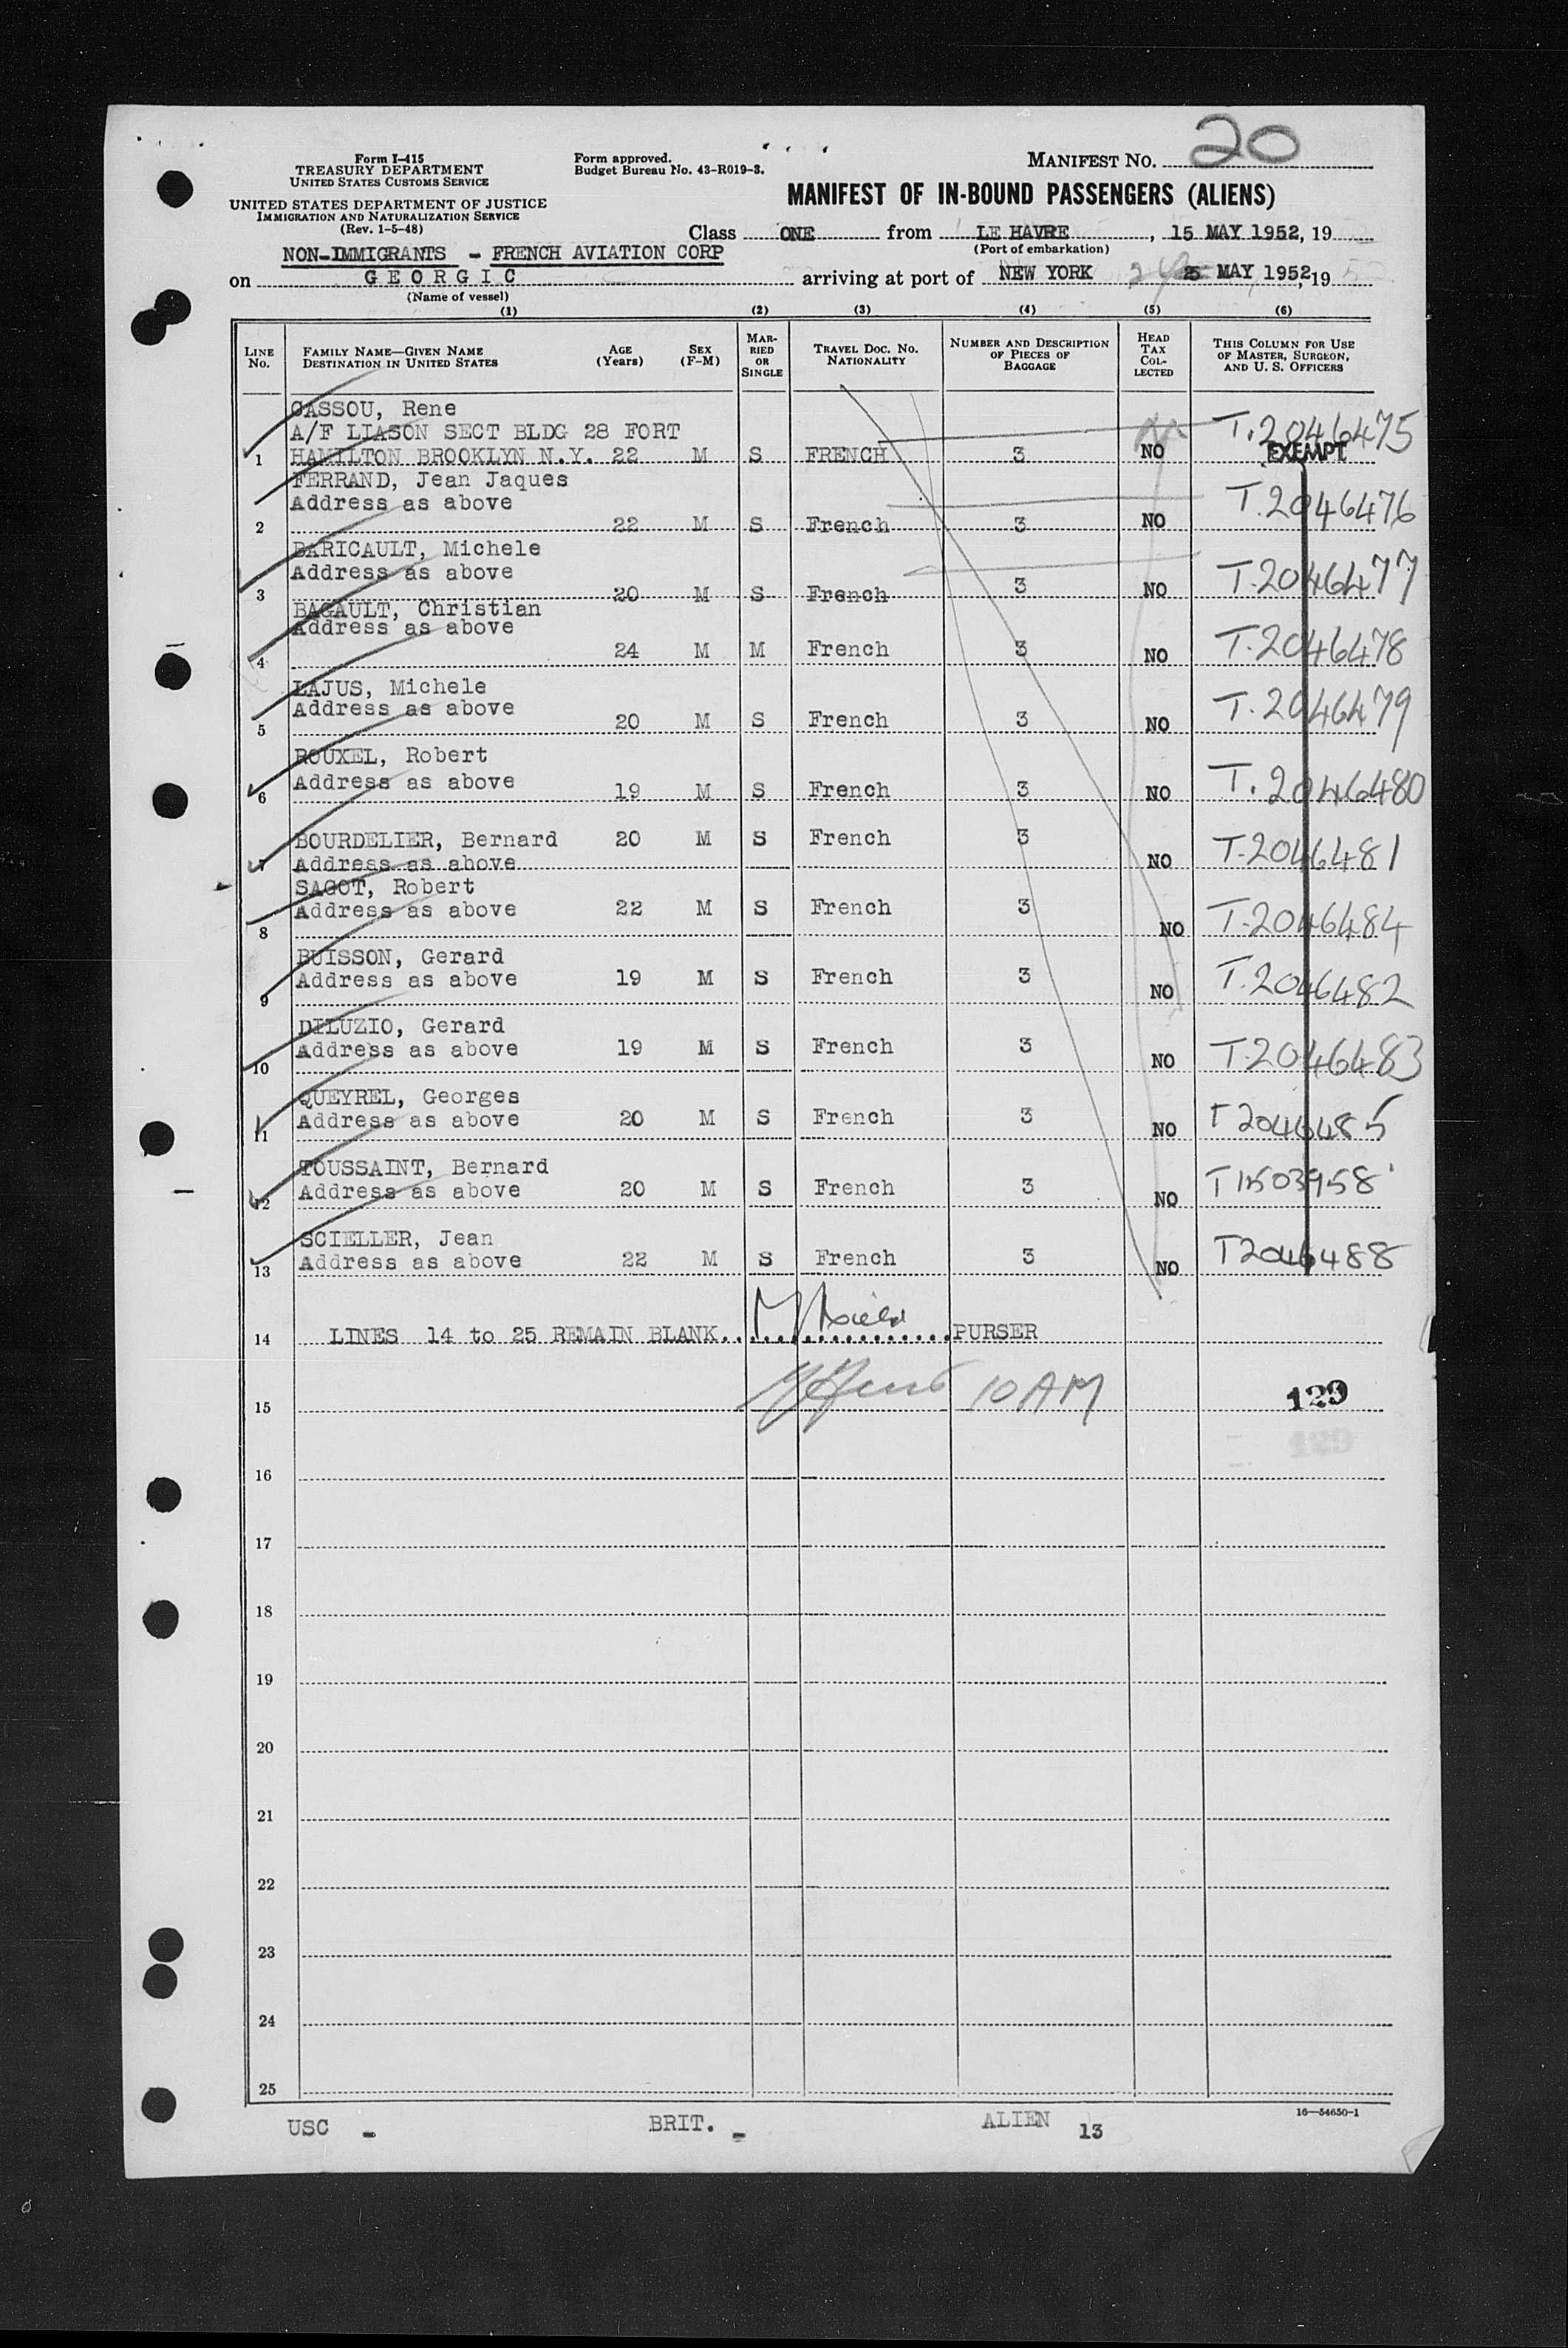 Form I-415
TREASURY DEPARTMENT
UNITED STATES CUSTOMS SERVICE
UNITED STATES DEPARTMENT OF JUSTICE
IMMIGRATION AND NATURALIZATION SERVICE
(Rev. 1-5-48)
Form approved.
Budget Bureau No. 43-R019-3.
MANIFEST NO. 20
MANIFEST OF IN-BOUND PASSENGERS (ALIENS)
Class ONE from LE HAVRE, 15 MAY 1952, 19
(Port of embarkation)
NON-IMMIGRANTS - FRENCH AVIATION CORP
on GEORGIC arriving at port of NEW YORK 25 MAY 1952, 19
(Name of vessel)
(1) (2) (3) (4) (5) (6)
LINE No. FAMILY NAME—GIVEN NAME DESTINATION IN UNITED STATES AGE (Years) SEX (F-M) MARRIED OR SINGLE TRAVEL DOC. NO. NATIONALITY NUMBER AND DESCRIPTION OF PIECES OF BAGGAGE HEAD TAX COLLECTED THIS COLUMN FOR USE OF MASTER, SURGEON, AND U. S. OFFICERS
CASSOU, Rene
A/F LIASON SECT BLDG 28 FORT T.2046475
1 HAMILTON BROOKLYN N.Y. 22 M S FRENCH 3 NO EXEMPT
FERRAND, Jean Jaques
Address as above T.2046476
2 22 M S French 3 NO
BARICAULT, Michele
Address as above T.2046477
3 20 M S French 3 NO
BAGAULT, Christian
Address as above
4 24 M M French 3 NO T.2046478
LAJUS, Michele
Address as above
5 20 M S French 3 NO T.2046479
ROUXEL, Robert
Address as above
6 19 M S French 3 NO T.2046480
BOURDELIER, Bernard 20 M S French 3
7 Address as above NO T.2046481
SAGOT, Robert
Address as above 22 M S French 3
8 NO T.2046484
BUISSON, Gerard
Address as above 19 M S French 3
9 NO T.2046482
DILUZIO, Gerard
Address as above 19 M S French 3
10 NO T.2046483
QUEYREL, Georges
Address as above 20 M S French 3
11 NO T2046485
TOUSSAINT, Bernard
Address as above 20 M S French 3
12 NO T1503958
SCIELLER, Jean
Address as above 22 M S French 3
13 NO T2046488
14 LINES 14 to 25 REMAIN BLANK.. PURSER
10 AM
15 129
16
17
18
19
20
21
22
23
24
25
16—54650-1
USC - BRIT. - ALIEN 13